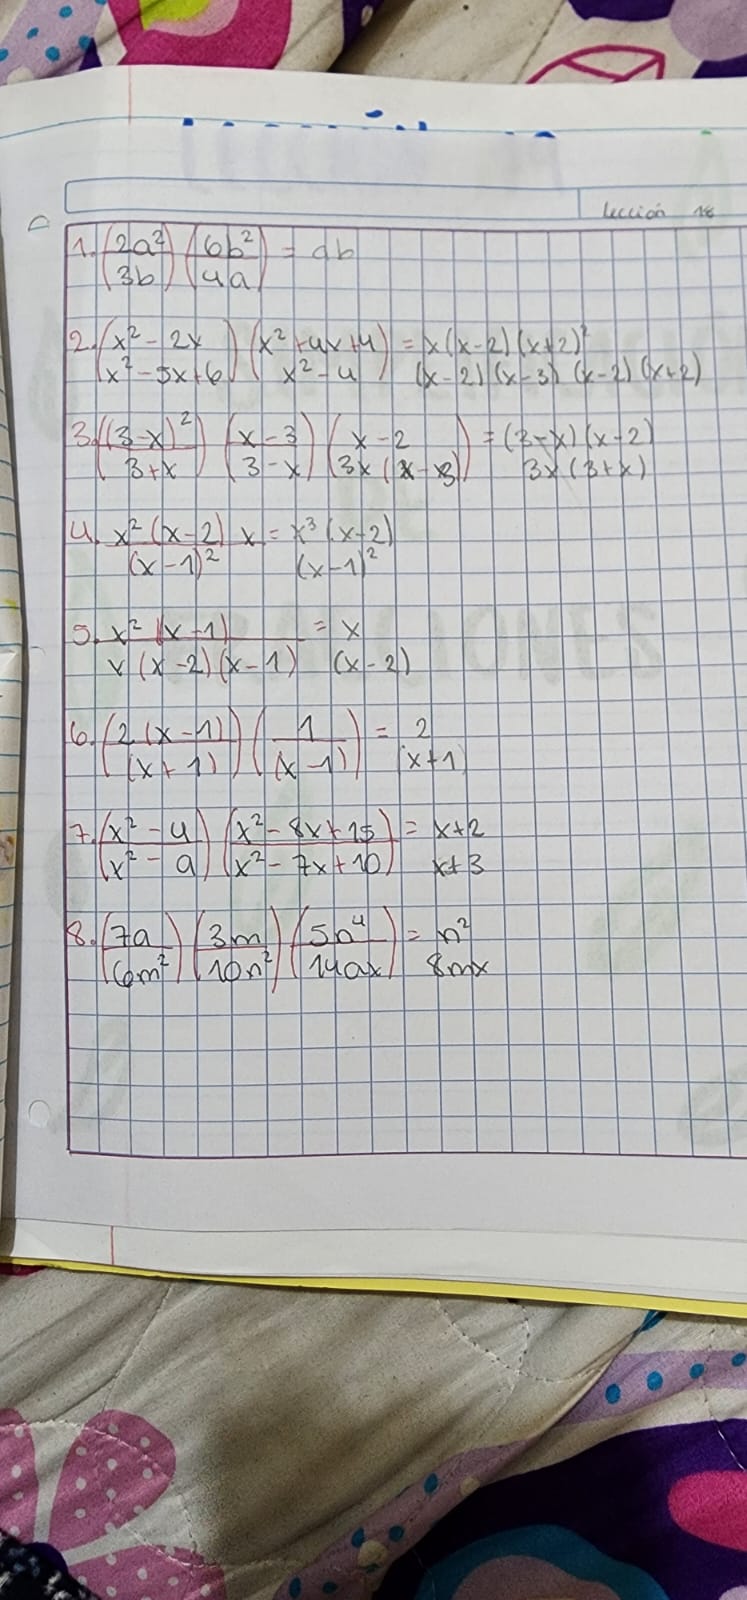 Lección 18
1. (2a²/3b)(6b²/4a) = ab
2. (x² - 2x / x² - 5x + 6)(x² + 4x + 4 / x² - 4) = x(x-2)(x+2)² / (x-2)(x-3)(x-2)(x+2)
3. ((3-x)² / 3+x)(x-3 / 3-x)(x-2 / 3x(x-3)) = (3-x)(x-2) / 3x(3+x)
4. x²(x-2) / (x-1)² x = x³(x-2) / (x-1)²
5. x²(x-1) / x(x-2)(x-1) = x / (x-2)
6. (2(x-1) / (x+1))(1 / (x-1)) = 2 / (x+1)
7. (x² - 4 / x² - 9)(x² - 8x + 15 / x² - 7x + 10) = x+2 / x+3
8. (7a / 6m²)(3m / 10n²)(5n⁴ / 14ax) = n² / 8mx